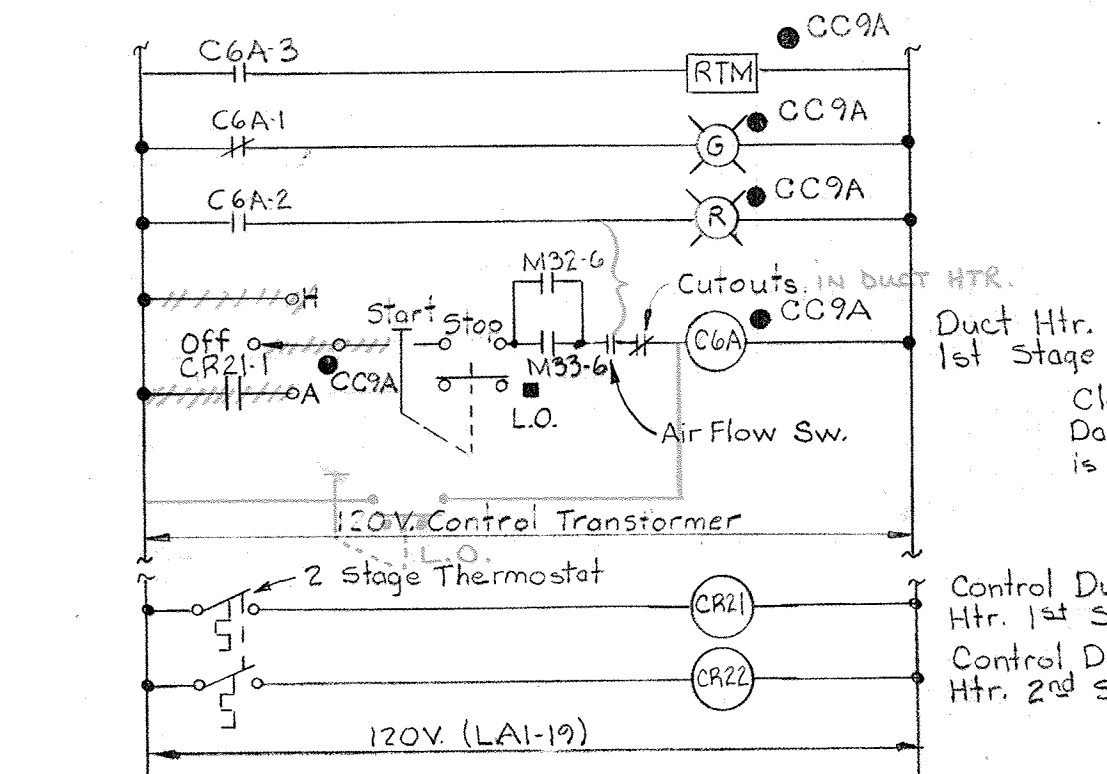 C6A-3
RTM
CC9A
C6A-1
G
CC9A
C6A-2
R
CC9A
M32-6
Cutouts IN DUCT HTR.
H
Start
Stop
C6A
CC9A
Duct Htr.
1st Stage
Off
CR21-1
A
CC9A
M33-6
L.O.
Air Flow Sw.
is
120V. Control Transformer
L.O.
2 Stage Thermostat
CR21
Control
Htr. 1st
CR22
Control
Htr. 2nd
120V. (LA1-19)